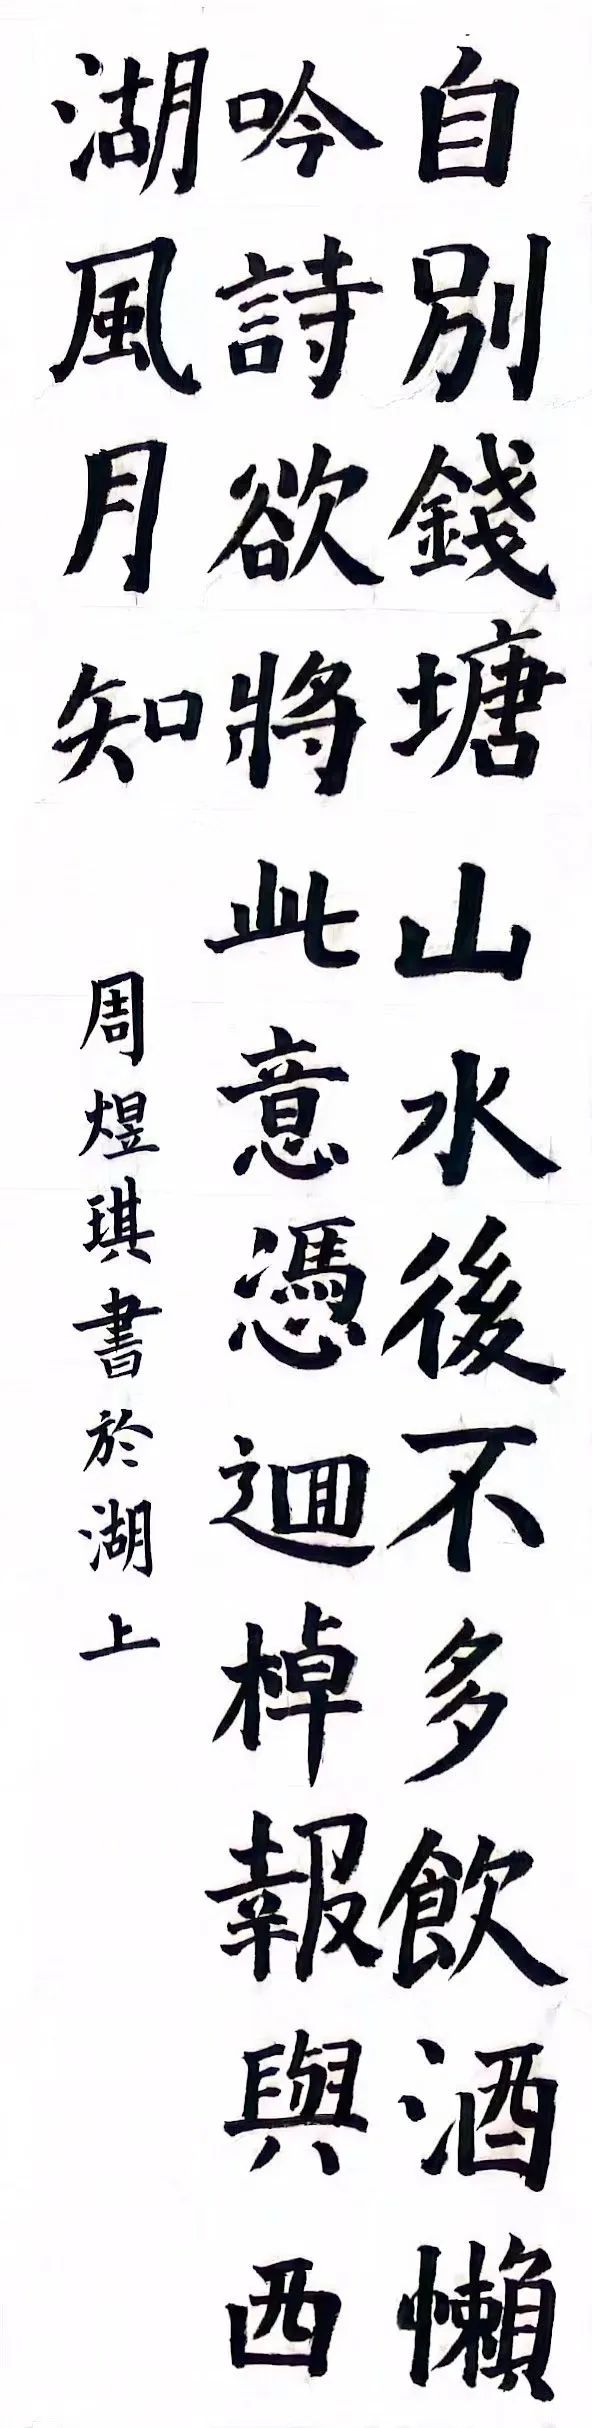 自別錢塘山水後不多飲酒懶
吟詩欲將此意憑迴棹報與西
湖風月知
周煜琪書於湖上